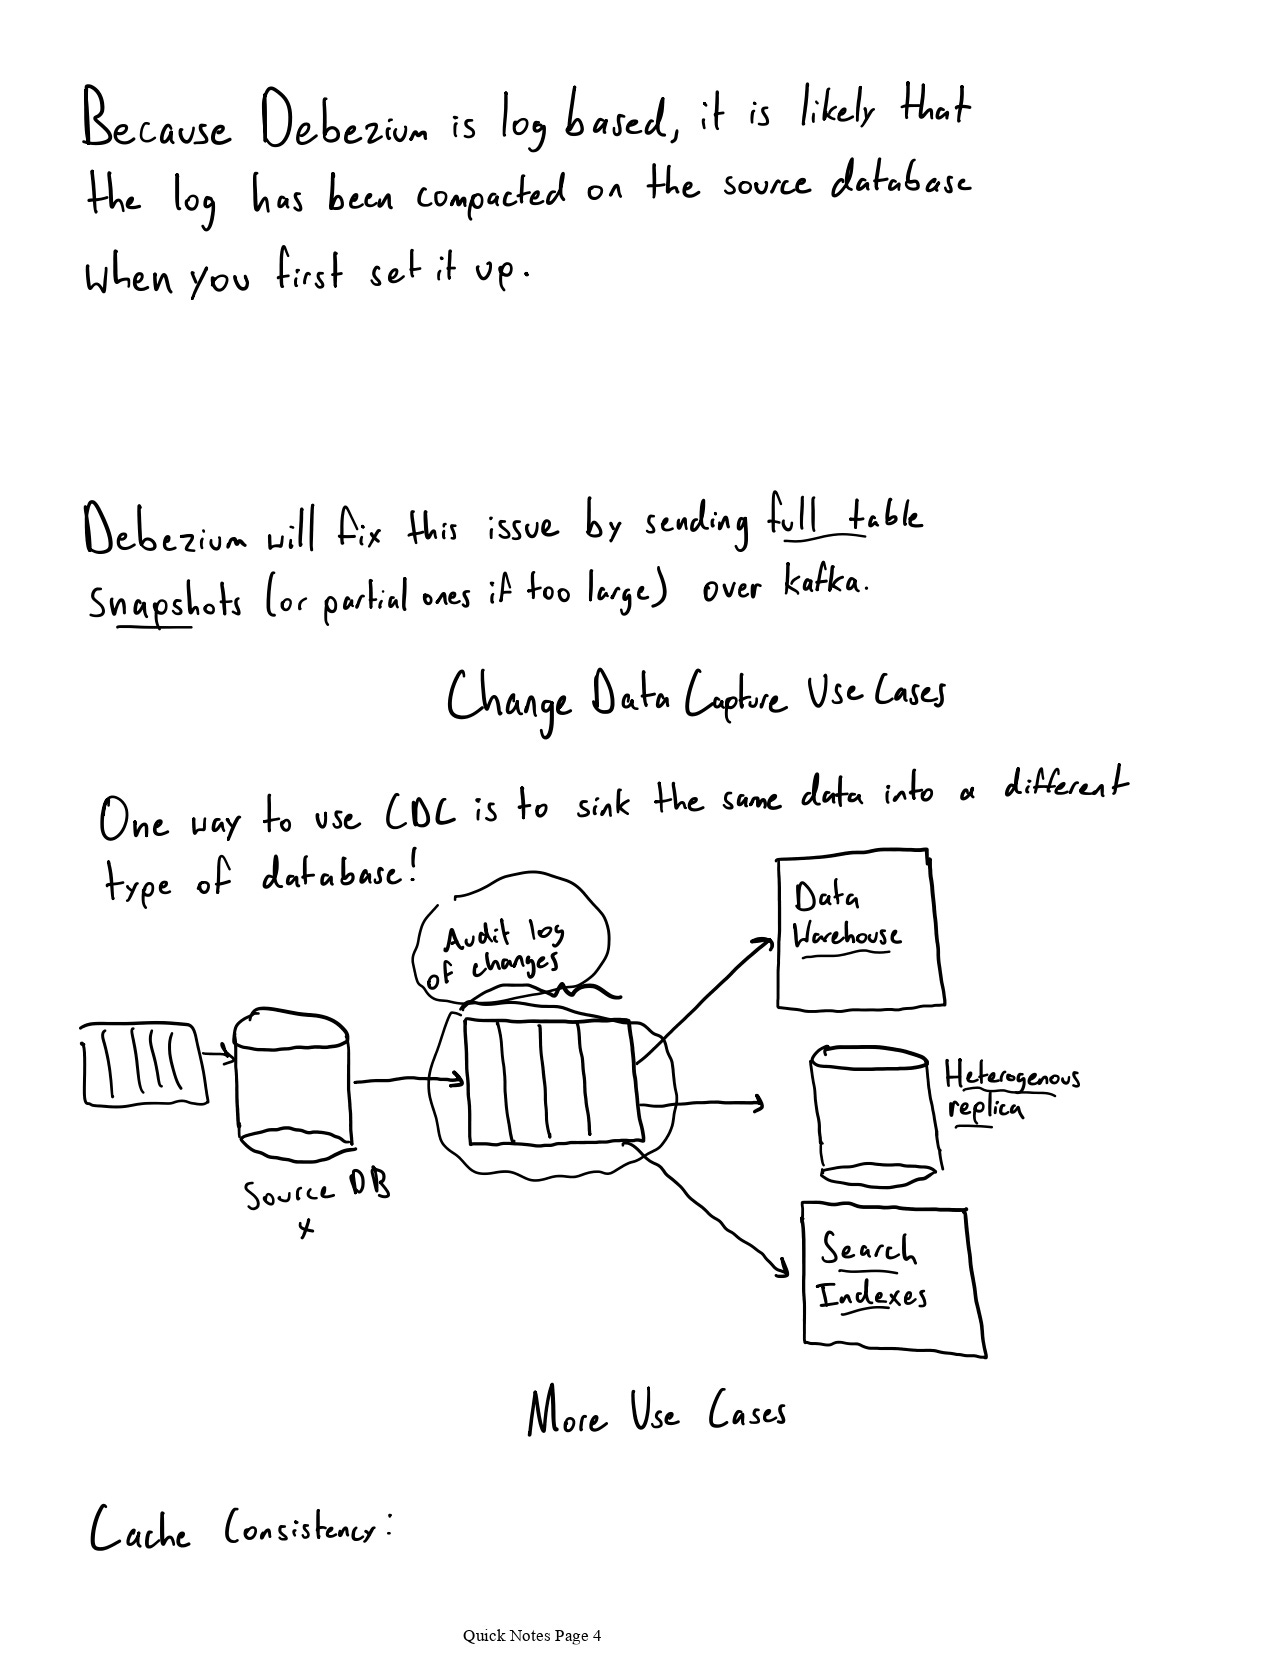 Because Debezium is log based, it is likely that
the log has been compacted on the source database
when you first set it up.
Debezium will fix this issue by sending full table
snapshots (or partial ones if too large) over kafka.
Change Data Capture Use Cases
One way to use CDC is to sink the same data into a different
type of database!
Audit log
of changes
Data
Warehouse
Heterogenous
replica
Source DB
x
Search
Indexes
More Use Cases
Cache Consistency:
Quick Notes Page 4